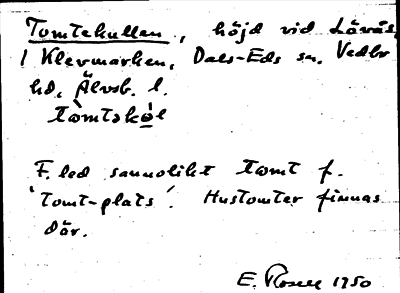 Tomtekullen, höjd vid Lövås,
i Klevmarken, Dals-Eds sn. Vedbo
hd, Älvsb. l.
tomtekol
F.led sannolikt tomt f.
'Tomt-plats'. Hustomter finnas
där.
E. Rosell 1950